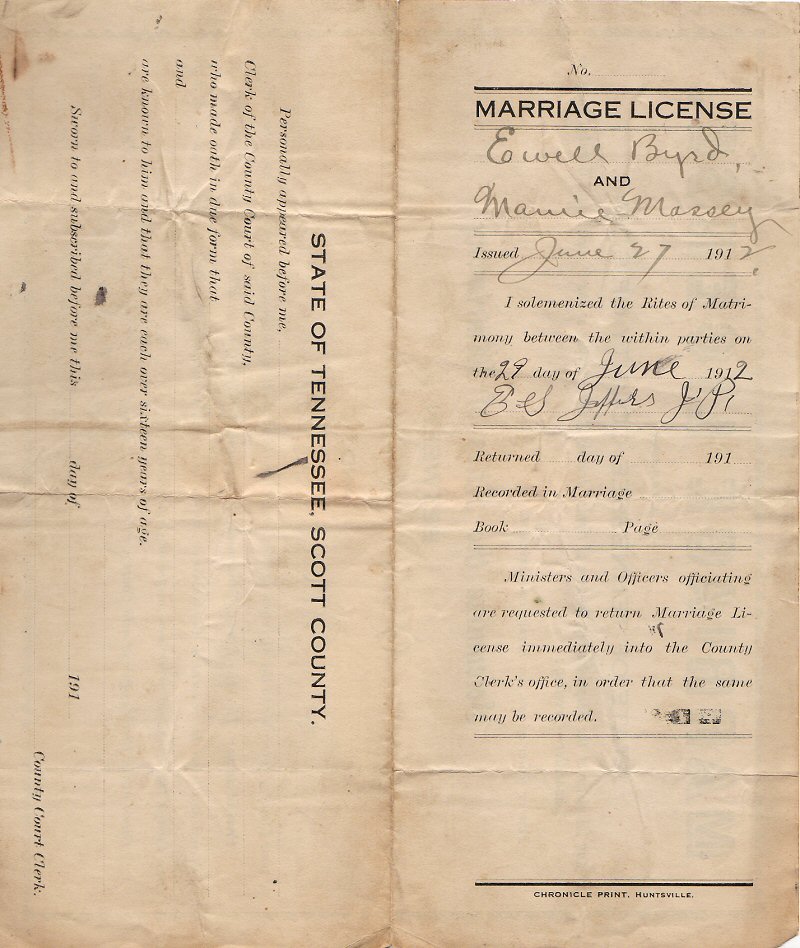 No.
MARRIAGE LICENSE
Ewell Byrd,
AND
Mamie Massey
Issued June 27 1912
I solemenized the Rites of Matri-
mony between the within parties on
the 29 day of June 1912
Jeffers J.P.
Returned day of 191
Recorded in Marriage
Book Page
Ministers and Officers officiating
are requested to return Marriage Li-
cense immediately into the County
Clerk's office, in order that the same
may be recorded.
CHRONICLE PRINT, HUNTSVILLE.
STATE OF TENNESSEE, SCOTT COUNTY.
Personally appeared before me,
Clerk of the County Court of said County,
who made oath in due form that
and
are known to him and that they are each over sixteen years of age.
Sworn to and subscribed before me this day of 191
County Court Clerk.